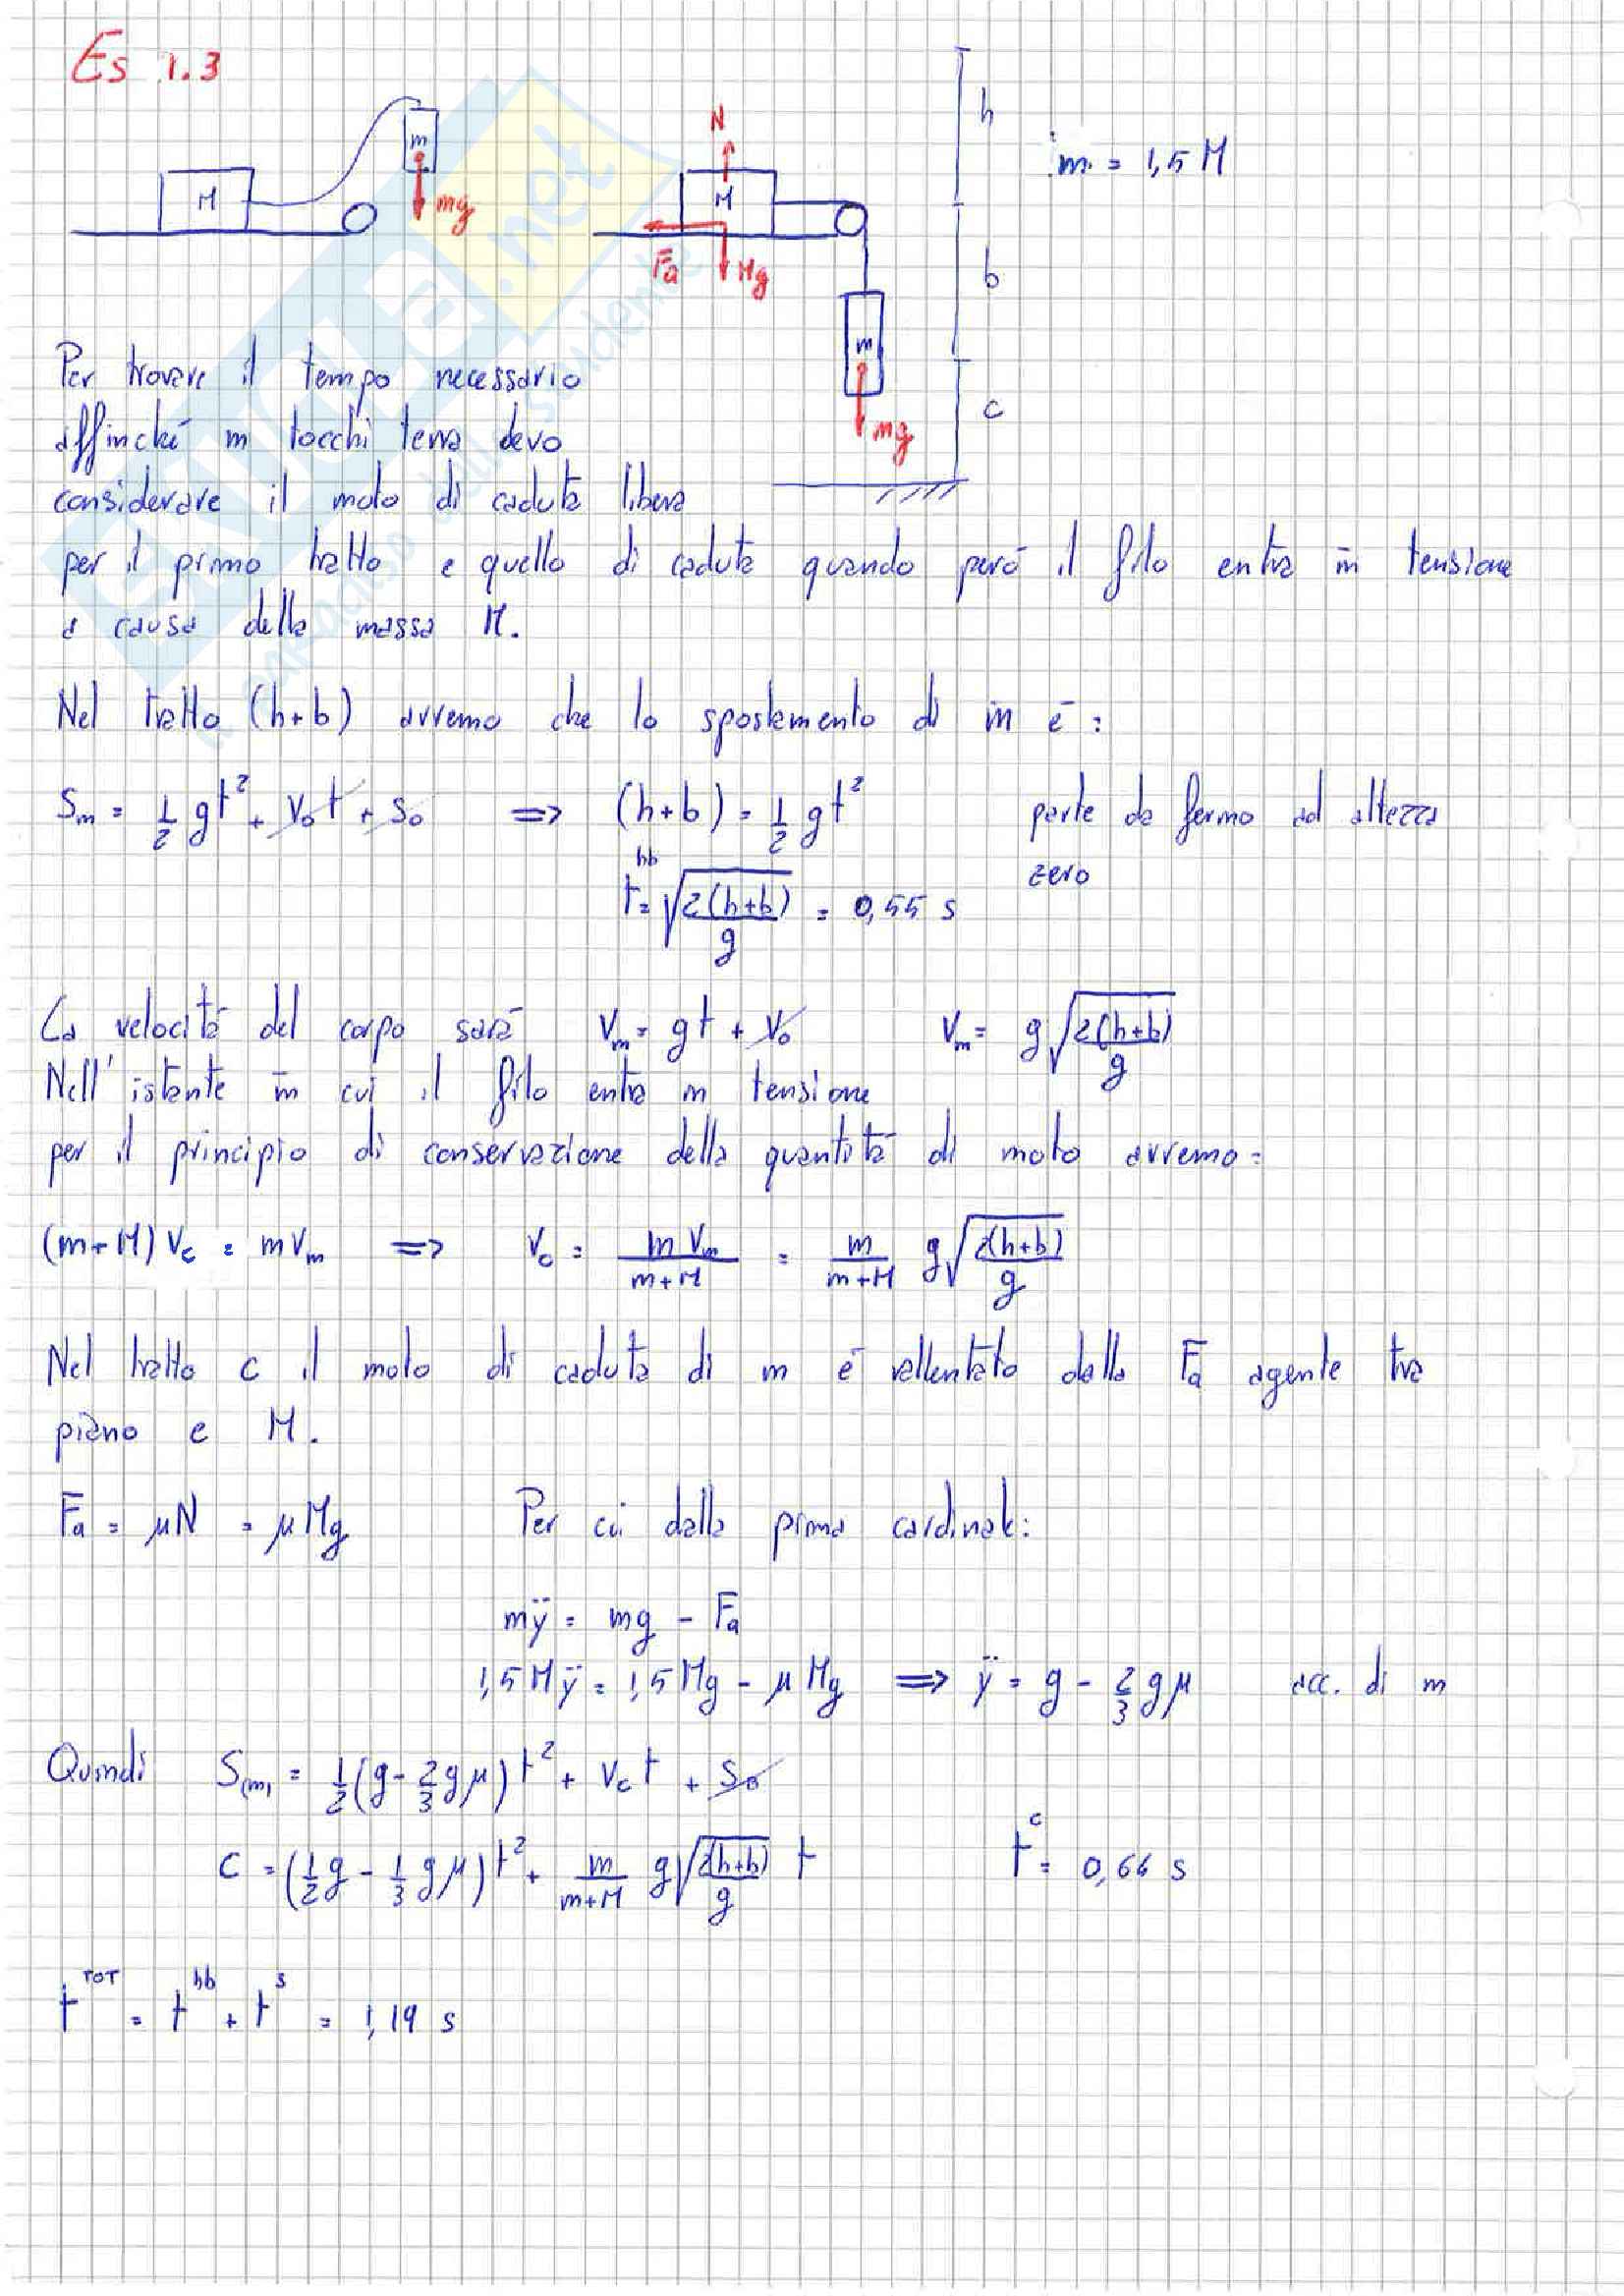 Es 1.3
M
m
mg
N
M
Fa
Mg
m
mg
h
b
c
m = 1,5 M
Per trovare il tempo necessario
affinché m tocchi terra devo
considerare il moto di caduta libera
per il primo tratto e quello di caduta quando però il filo entra in tensione
a causa della massa M.
Nel tratto (h+b) avremo che lo spostamento di m è :
Sm = 1/2 gt² + V₀t + S₀ => (h+b) = 1/2 gt² parte da fermo ad altezza
zero
t^hb = √(2(h+b)/g) = 0,55 s
La velocità del corpo sarà Vm = gt + V₀ Vm = g√(2(h+b)/g)
Nell'istante in cui il filo entra in tensione
per il principio di conservazione della quantità di moto avremo:
(m+M) Vc = m Vm => Vc = m Vm/(m+M) = m/(m+M) g√(2(h+b)/g)
Nel tratto c il moto di caduta di m è rallentato dalla Fa agente tra
piano e M.
Fa = μN = μMg Per cui dalla prima cardinale:
mÿ = mg - Fa
1,5 Mÿ = 1,5 Mg - μMg => ÿ = g - 2/3 gμ acc. di m
Quindi S(m) = 1/2 (g - 2/3 gμ)t² + Vc t + S₀
C = (1/2 g - 1/3 gμ)t² + m/(m+M) g√(2(h+b)/g) t t^c = 0,64 s
t^TOT = t^hb + t^s = 1,19 s